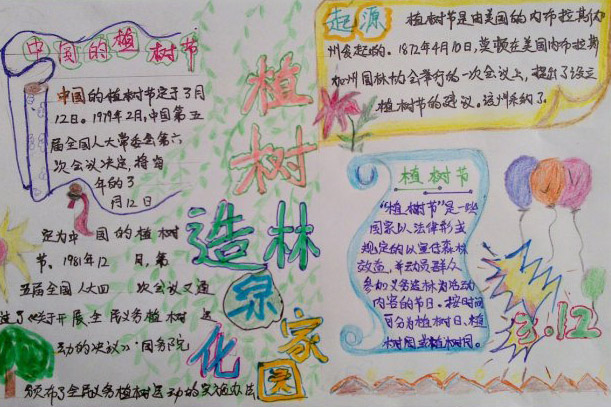 中国的植树节
中国的植树节定于3月
12日。1979年2月,中国第五
届全国人大常委会第六
次会议决定,将每
年的3
月12日
定为中国的植树
节。1981年12月,第
五届全国人大四次会议又通
过了《关于开展全民义务植树运
动的决议》。国务院
颁布了全民义务植树运动的实施办法。
植树
造林
绿化
家园
起源
植树节是由美国的内布拉斯
州发起的。1872年4月10日,莫顿在美国内布拉斯
加州园林协会举行的一次会议上,提出了设立
植树节的建议。该州采纳了。
植树节
"植树节"是一些
国家以法律形式
规定的以宣传森林
效益,并动员群众
参加义务造林为活动
内容的节日。按时间
可分为植树日、植
树周或植树月。
3.12